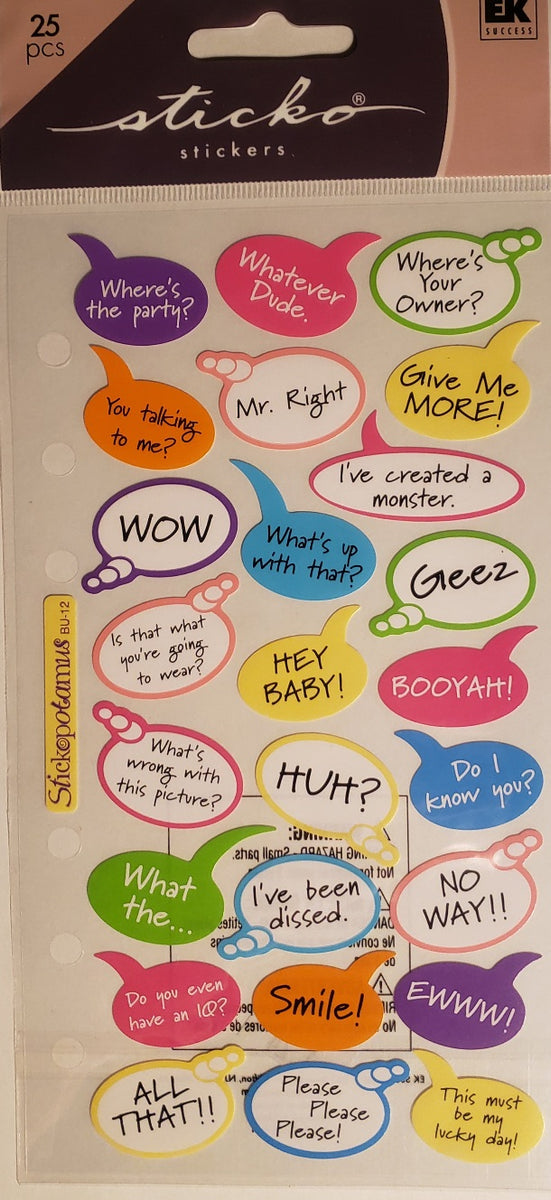 25
pcs
EK
SUCCESS
sticko®
stickers
Where's
the party?
Whatever
Dude.
Where's
Your
Owner?
You talking
to me?
Mr. Right
Give Me
MORE!
I've created a
monster.
WOW
What's up
with that?
Geez
Is that what
you're going
to wear?
HEY
BABY!
BOOYAH!
Stickopotamus BU-12
What's
wrong with
this picture?
HUH?
Do I
know you?
What
the...
I've been
dissed.
NO
WAY!!
Do you even
have an IQ?
Smile!
EWWW!
ALL
THAT!!
Please
Please
Please!
This must
be my
lucky day!